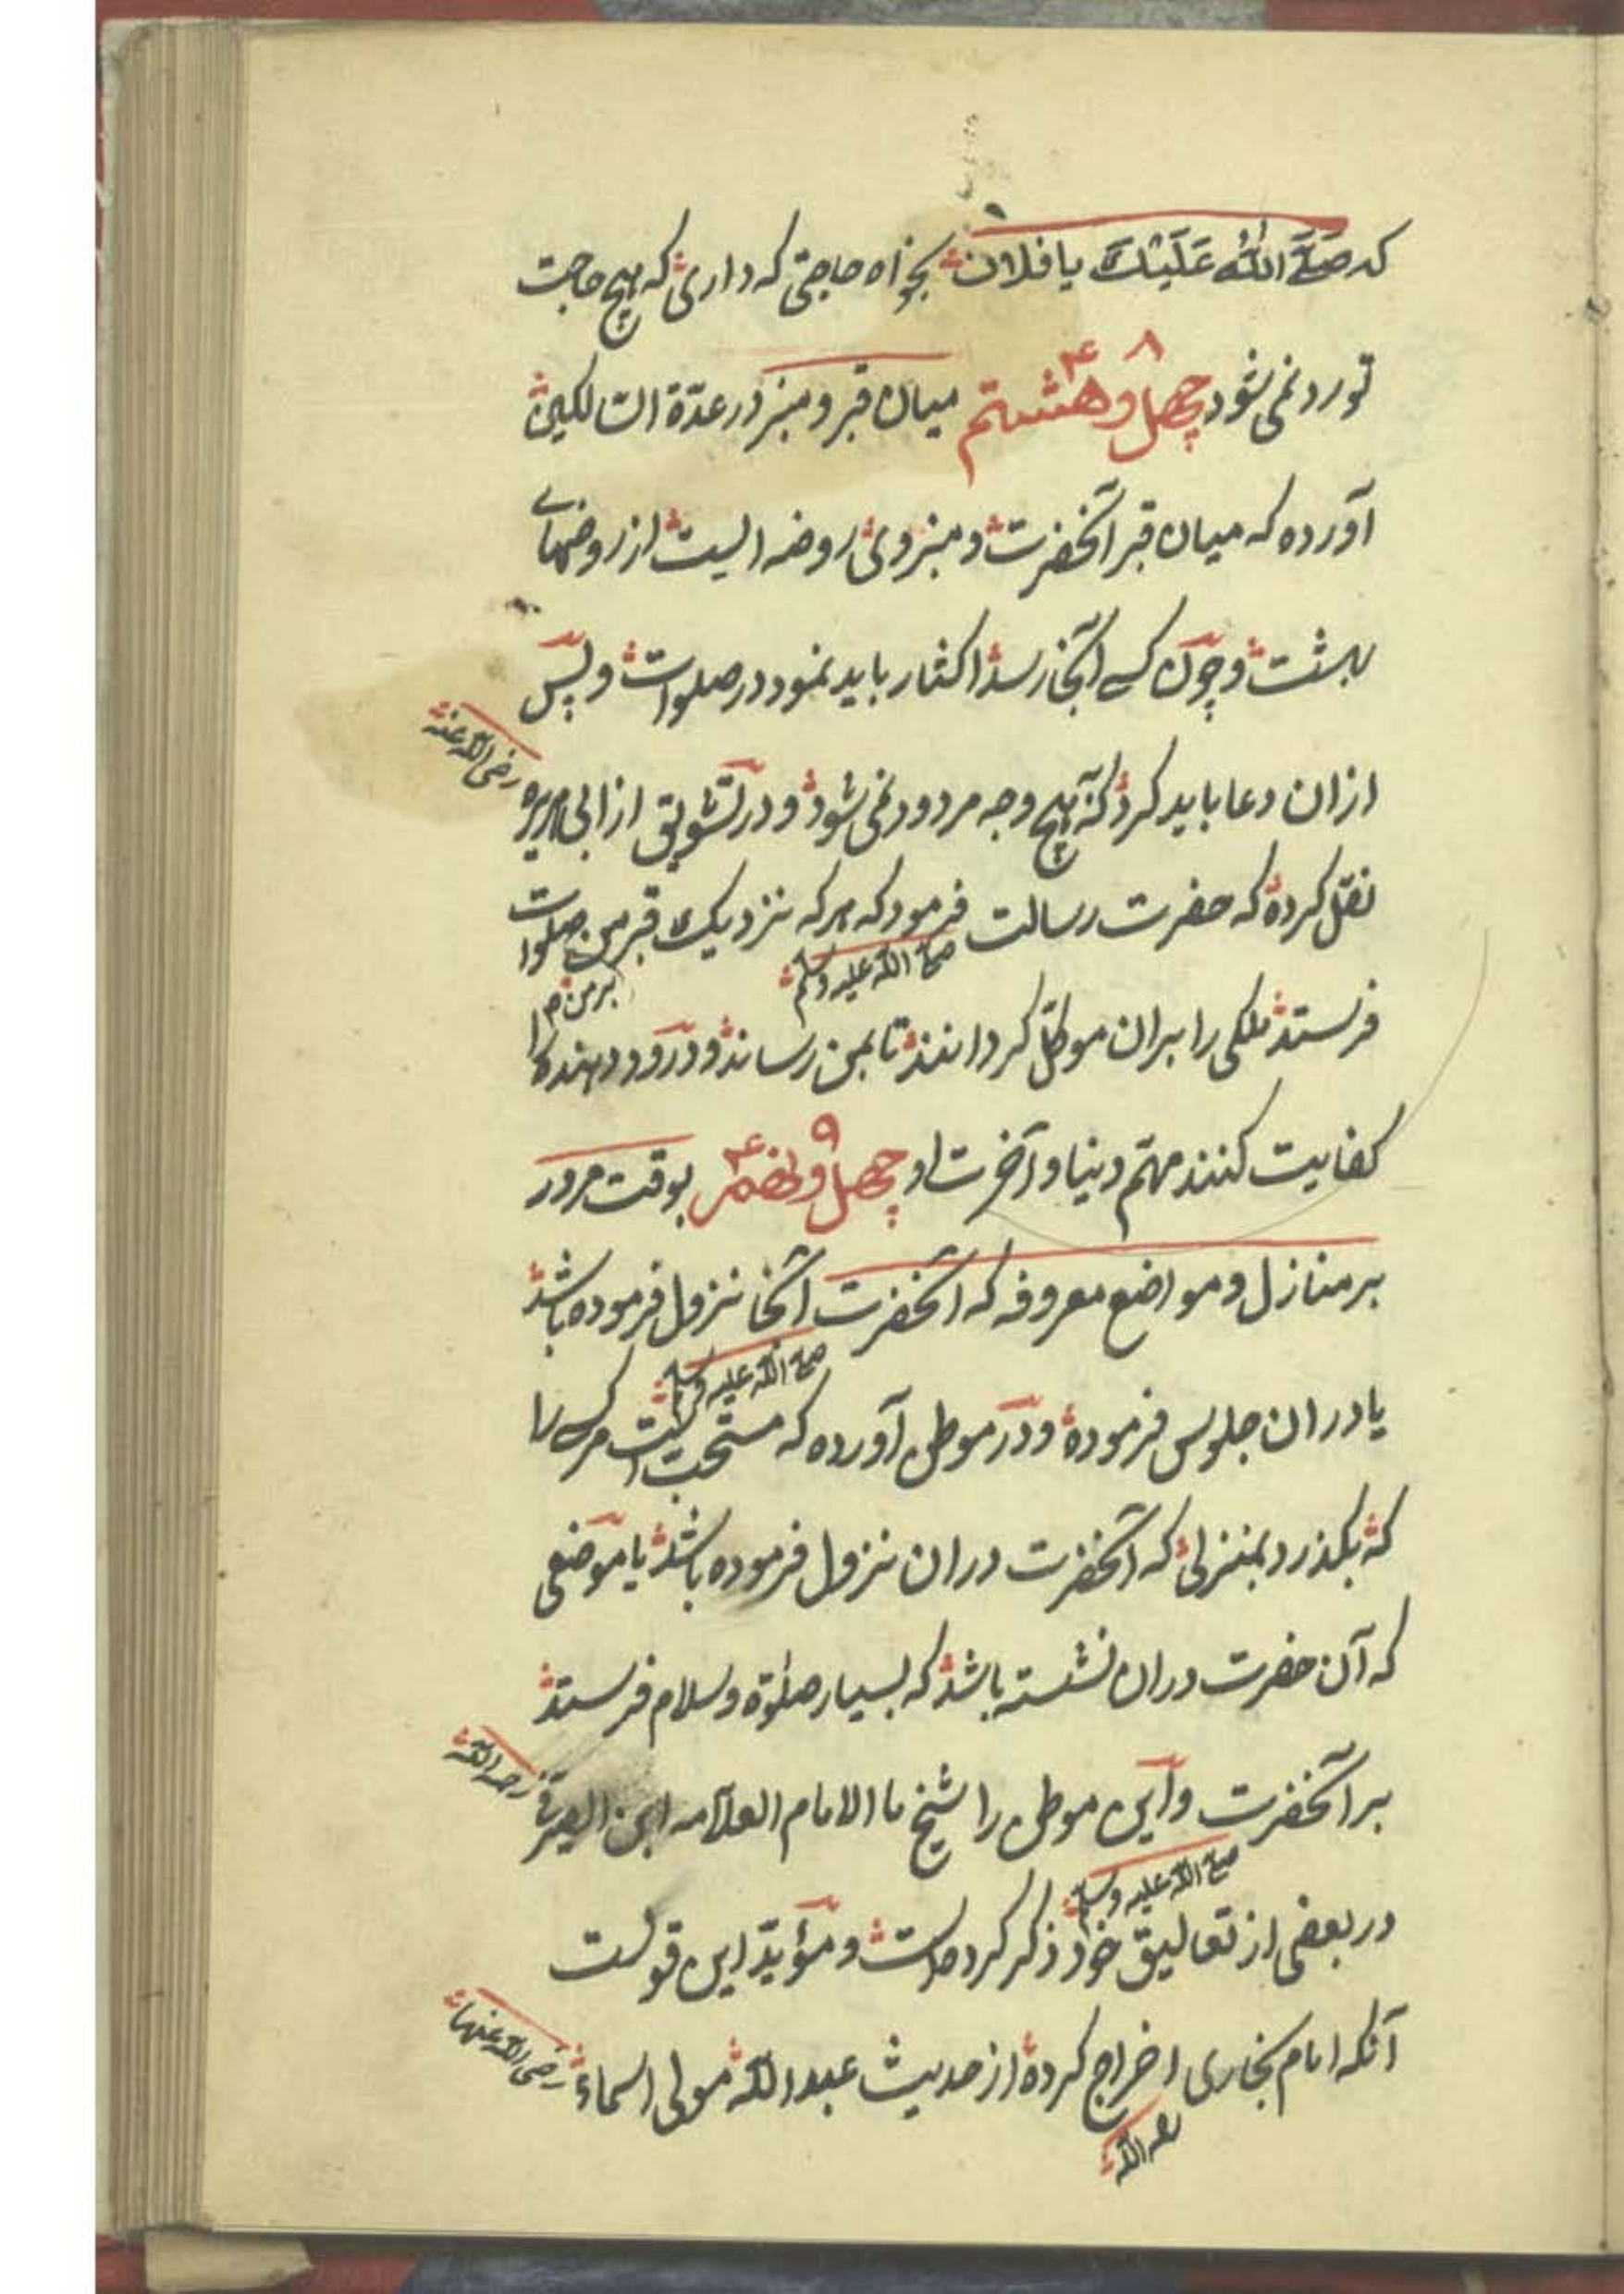 که صَلَّی اللهُ عَلَیْكَ یا فلان بخواه حاجتی که داری که هیچ حاجت
تو رد نمی شود چهل و هشتم ۴۸ میان قبر و منبر در عدّة السالکین
آورده که میان قبر آنحضرت و منبر وی روضه ایست از روضهای
بهشت و چون کسی آنجا رسد اکثار باید نمود در صلوات و پس
ازان دعا باید کرد که آن هیچ وجه مردود نمی شود و در تشویق از ابی هریره رضی الله عنه
نقل کرده که حضرت رسالت صلی الله علیه وسلم فرمود که هر که نزدیک قبر من صلوات بر من
فرستد ملکی را بران موکّل گردانند تا بمن رساند و درود دهنده را
کفایت کنند مهمّ دنیا و آخرت او چهل و نهم ۴۹ بوقت مرور
بر منازل و مواضع معروفه که آنحضرت صلی الله علیه وسلم آنجا نزول فرموده باشد
یا دران جلوس فرموده و در موطن آورده که مستحبّ است هر کسی را
که بگذرد بمنزلی که آنحضرت دران نزول فرموده باشد یا موضعی
که آن حضرت دران نشسته باشد که بسیار صلوة و سلام فرستد
بر آنحضرت صلی الله علیه وسلم و این موطن را شیخ ما الامام العلّامه ابن الصیرفی رحمه الله
در بعضی از تعالیق خود ذکر کرده است و مؤیّد این قولست
آنکه امام بخاری رحمه الله اخراج کرده از حدیث عبد الله مولی اسماء رضی الله عنها